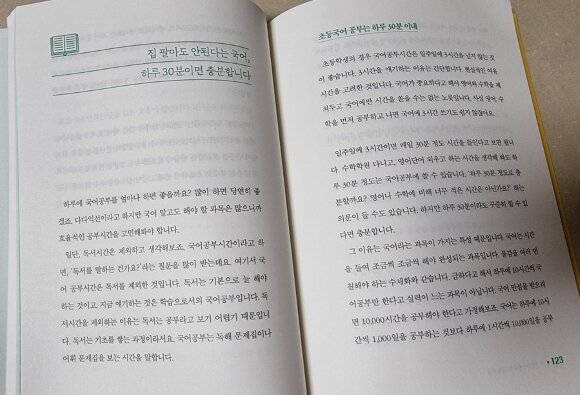 집 팔아도 안된다는 국어,
하루 30분이면 충분합니다
하루에 국어공부를 얼마나 하면 좋을까요? 많이 하면 당연히 좋
겠죠. 다다익선이라고 하지만 국어 말고도 해야 할 과목은 많으니까
효율적인 공부시간을 고민해봐야 합니다.
일단, 독서시간은 제외하고 생각해보죠. 국어공부시간이라고 하
면, '독서를 말하는 건가요?'라는 질문을 많이 받는데요. 여기서 국
어 공부시간은 독서를 제외한 것입니다. 독서는 기본으로 늘 해야
하는 것이고, 지금 얘기하는 것은 학습으로서의 국어공부입니다. 독
서시간을 제외하는 이유는 독서는 공부라고 보기 어렵기 때문입니
다. 독서는 기초를 쌓는 과정이라서요. 국어공부는 독해 문제집이나
어휘 문제집을 보는 시간을 말합니다.
초등국어 공부는 하루 30분 이내
초등학생의 경우 국어공부시간은 일주일에 3시간을 넘지 않는 것
이 좋습니다. 3시간을 얘기하는 이유는 간단합니다. 현실적인 여유
시간을 고려한 것입니다. 국어가 중요하다고 해서 영어와 수학을 제
쳐두고 국어에만 시간을 쏟을 수는 없는 노릇입니다. 사실 영어, 수
학을 먼저 공부하고 나면 국어에 3시간 쓰기도 쉽지 않잖아요.
일주일에 3시간이면 매일 30분 정도 시간을 들인다고 보면 됩니
다. 수학학원 다니고, 영어단어 외우고 하는 시간을 생각해 봐도 하
루 30분 정도는 국어공부에 쓸 수 있습니다. '하루 30분 정도로 충
분할까요? 영어나 수학에 비해 너무 적은 시간 아닌가요?' 하는
의문이 들 수도 있습니다. 하지만 하루 30분이라도 꾸준히 할 수 있
다면 충분합니다.
그 이유는 국어라는 과목이 가지는 특성 때문입니다. 국어는 시간
을 들여 조금씩 조금씩 해야 완성되는 과목입니다. 물감을 여러 번
칠해야 하는 수채화와 같습니다. 급하다고 해서 하루에 10시간씩 국
어공부만 한다고 실력이 느는 과목이 아닙니다. 국어 만점을 받으려
면 10,000시간을 공부해야 한다고 가정해보죠. 국어는 하루에 10시
간씩 1,000일을 공부하는 것보다 하루에 1시간씩 10,000일을 공부
123